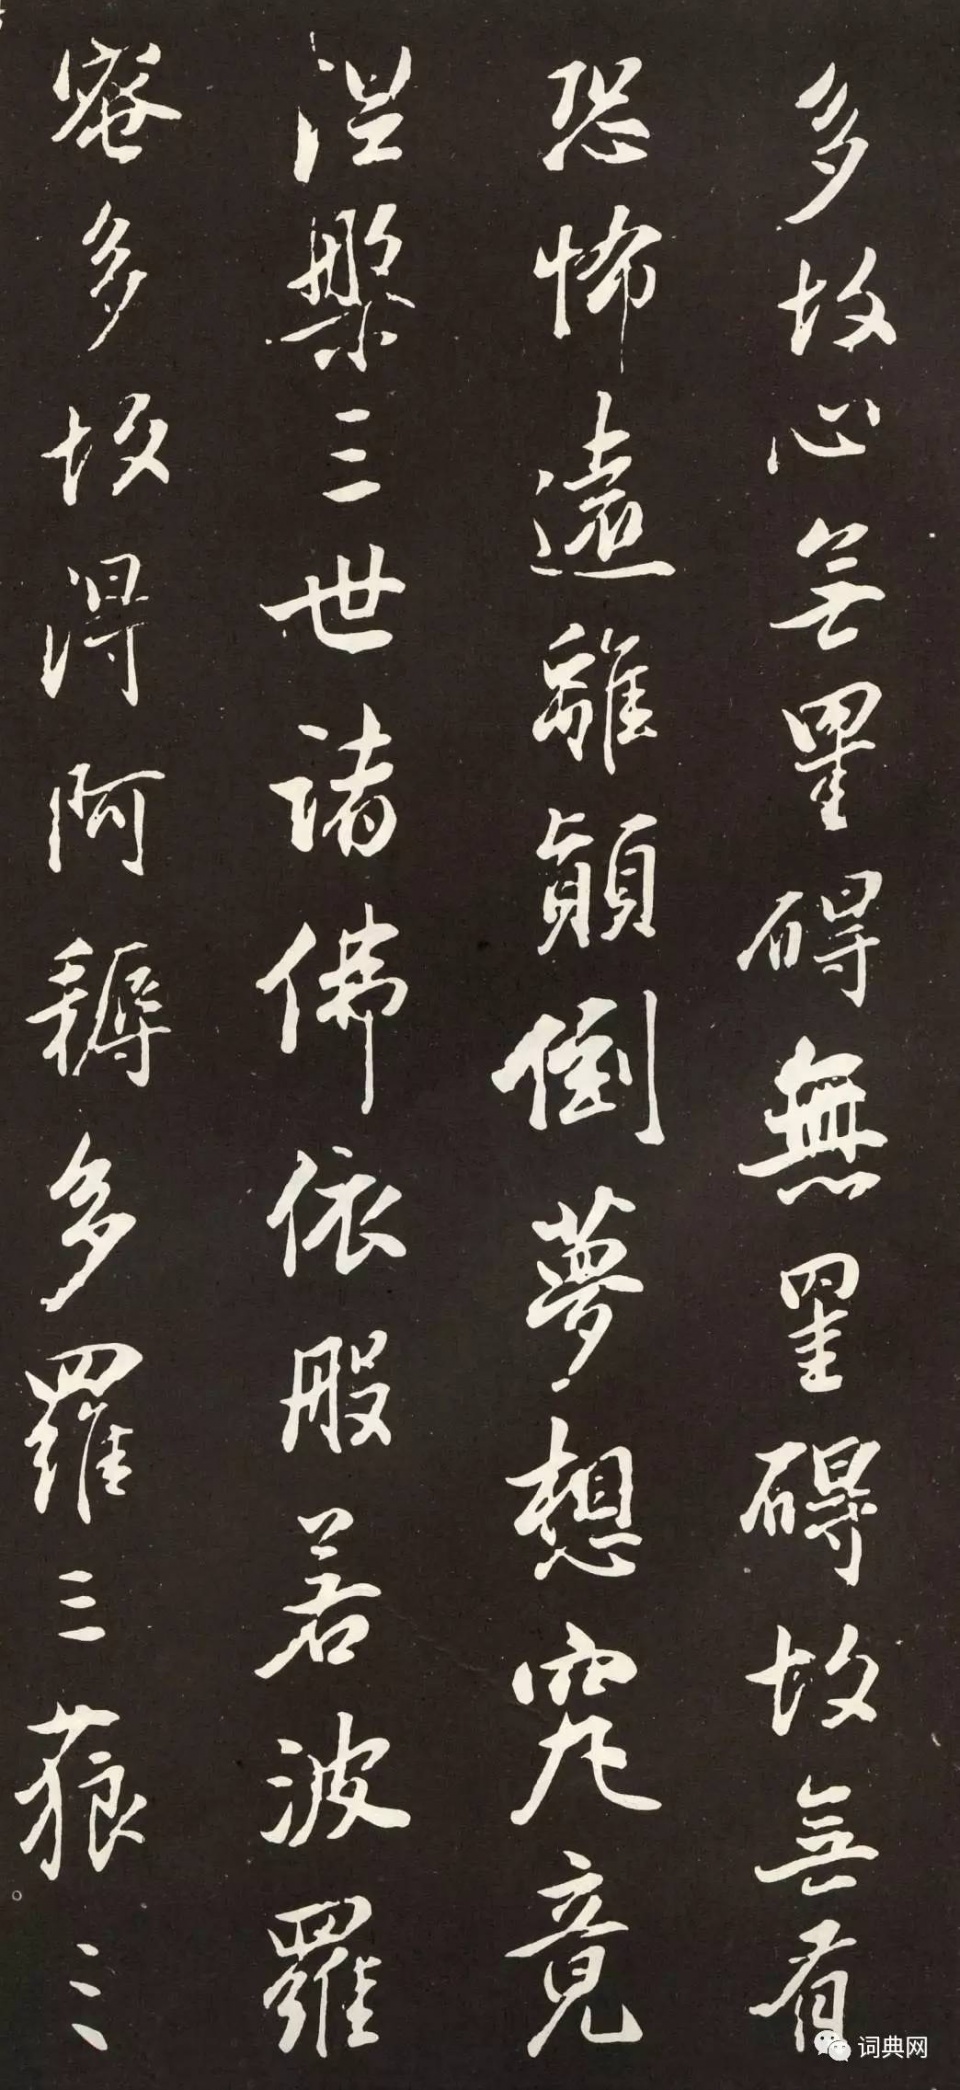 多故心無罣碍無罣碍故無有
恐怖遠離顛倒夢想究竟
涅槃三世諸佛依般若波羅
蜜多故得阿耨多羅三藐三
词典网